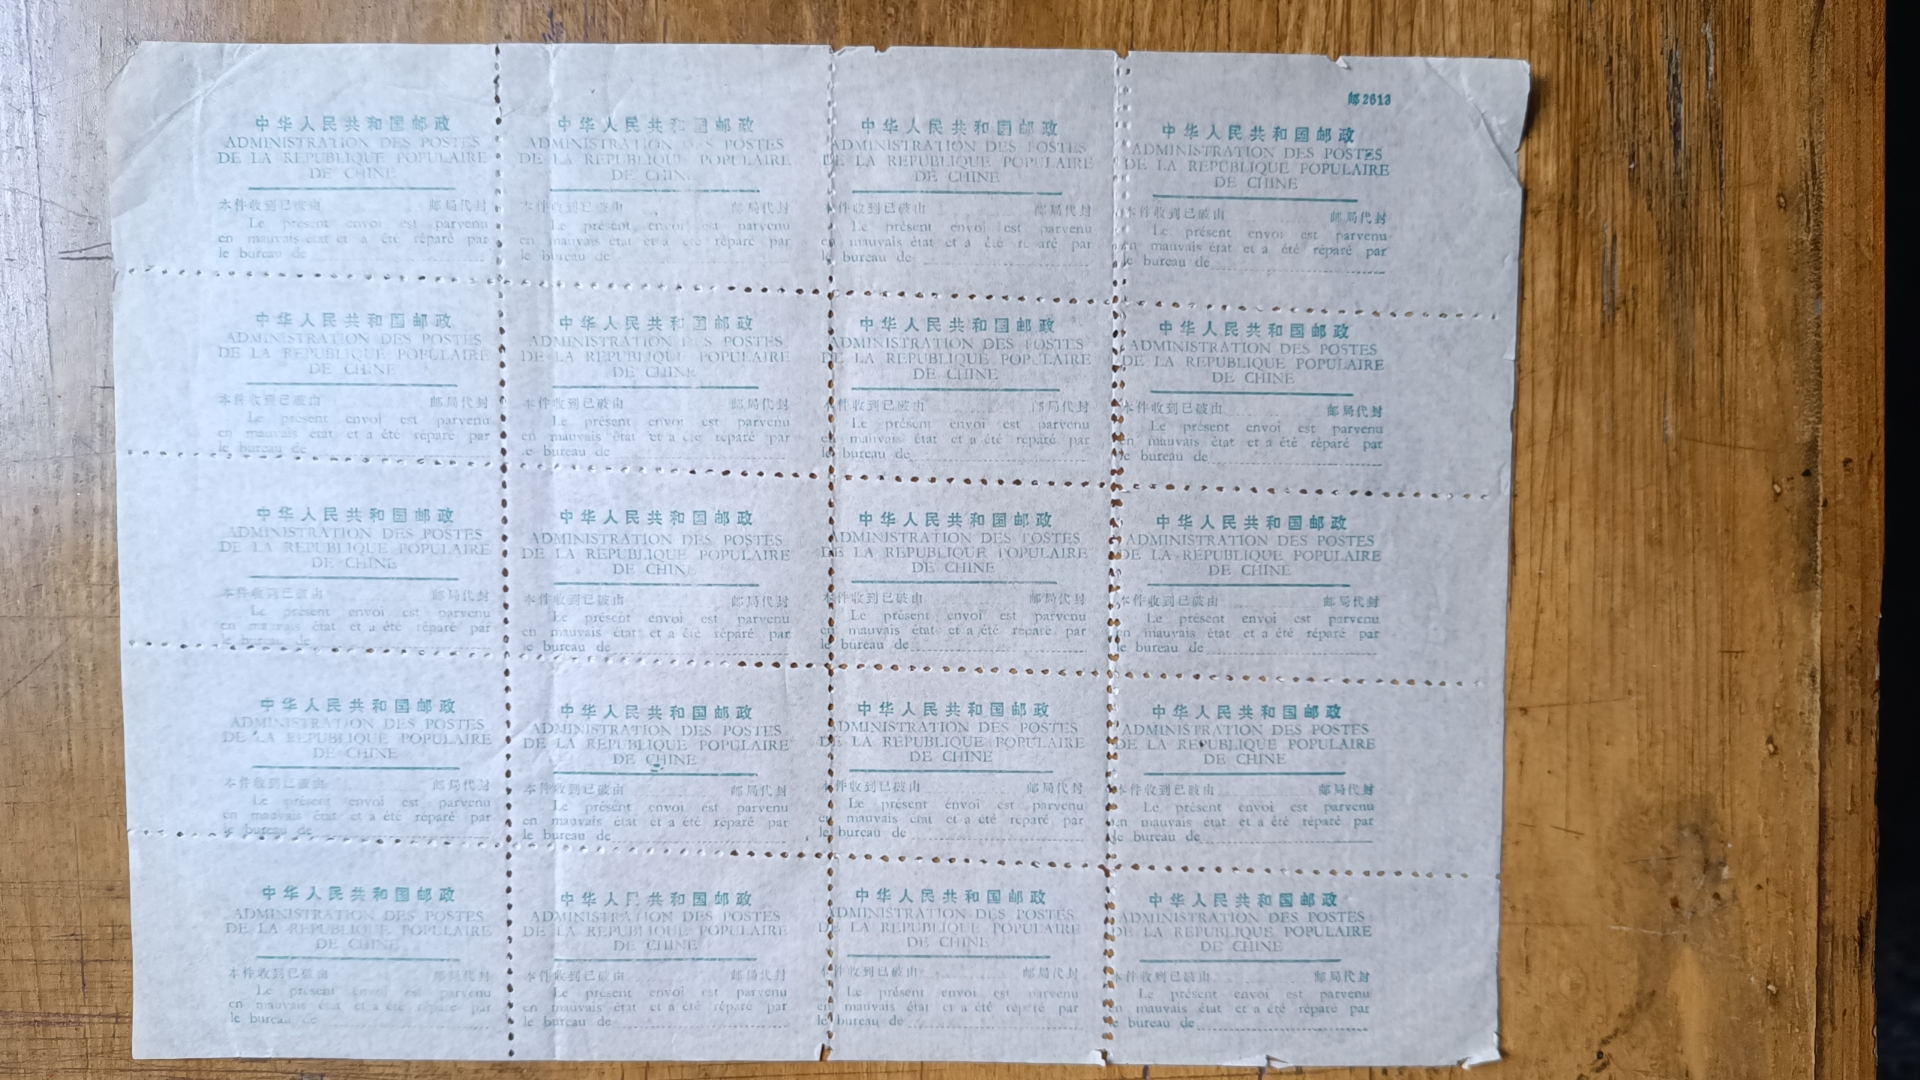 邮2613
中华人民共和国邮政
ADMINISTRATION DES POSTES
DE LA REPUBLIQUE POPULAIRE
DE CHINE
本件收到已破由 邮局代封
Le présent envoi est parvenu
en mauvais état et a été réparé par
le bureau de
中华人民共和国邮政
ADMINISTRATION DES POSTES
DE LA REPUBLIQUE POPULAIRE
DE CHINE
本件收到已破由 邮局代封
Le présent envoi est parvenu
en mauvais état et a été réparé par
le bureau de
中华人民共和国邮政
ADMINISTRATION DES POSTES
DE LA REPUBLIQUE POPULAIRE
DE CHINE
本件收到已破由 邮局代封
Le présent envoi est parvenu
en mauvais état et a été réparé par
le bureau de
中华人民共和国邮政
ADMINISTRATION DES POSTES
DE LA REPUBLIQUE POPULAIRE
DE CHINE
本件收到已破由 邮局代封
Le présent envoi est parvenu
en mauvais état et a été réparé par
le bureau de
中华人民共和国邮政
ADMINISTRATION DES POSTES
DE LA REPUBLIQUE POPULAIRE
DE CHINE
本件收到已破由 邮局代封
Le présent envoi est parvenu
en mauvais état et a été réparé par
le bureau de
中华人民共和国邮政
ADMINISTRATION DES POSTES
DE LA REPUBLIQUE POPULAIRE
DE CHINE
本件收到已破由 邮局代封
Le présent envoi est parvenu
en mauvais état et a été réparé par
le bureau de
中华人民共和国邮政
ADMINISTRATION DES POSTES
DE LA REPUBLIQUE POPULAIRE
DE CHINE
本件收到已破由 邮局代封
Le présent envoi est parvenu
en mauvais état et a été réparé par
le bureau de
中华人民共和国邮政
ADMINISTRATION DES POSTES
DE LA REPUBLIQUE POPULAIRE
DE CHINE
本件收到已破由 邮局代封
Le présent envoi est parvenu
en mauvais état et a été réparé par
le bureau de
中华人民共和国邮政
ADMINISTRATION DES POSTES
DE LA REPUBLIQUE POPULAIRE
DE CHINE
本件收到已破由 邮局代封
Le présent envoi est parvenu
en mauvais état et a été réparé par
le bureau de
中华人民共和国邮政
ADMINISTRATION DES POSTES
DE LA REPUBLIQUE POPULAIRE
DE CHINE
本件收到已破由 邮局代封
Le présent envoi est parvenu
en mauvais état et a été réparé par
le bureau de
中华人民共和国邮政
ADMINISTRATION DES POSTES
DE LA REPUBLIQUE POPULAIRE
DE CHINE
本件收到已破由 邮局代封
Le présent envoi est parvenu
en mauvais état et a été réparé par
le bureau de
中华人民共和国邮政
ADMINISTRATION DES POSTES
DE LA REPUBLIQUE POPULAIRE
DE CHINE
本件收到已破由 邮局代封
Le présent envoi est parvenu
en mauvais état et a été réparé par
le bureau de
中华人民共和国邮政
ADMINISTRATION DES POSTES
DE LA REPUBLIQUE POPULAIRE
DE CHINE
本件收到已破由 邮局代封
Le présent envoi est parvenu
en mauvais état et a été réparé par
le bureau de
中华人民共和国邮政
ADMINISTRATION DES POSTES
DE LA REPUBLIQUE POPULAIRE
DE CHINE
本件收到已破由 邮局代封
Le présent envoi est parvenu
en mauvais état et a été réparé par
le bureau de
中华人民共和国邮政
ADMINISTRATION DES POSTES
DE LA REPUBLIQUE POPULAIRE
DE CHINE
本件收到已破由 邮局代封
Le présent envoi est parvenu
en mauvais état et a été réparé par
le bureau de
中华人民共和国邮政
ADMINISTRATION DES POSTES
DE LA REPUBLIQUE POPULAIRE
DE CHINE
本件收到已破由 邮局代封
Le présent envoi est parvenu
en mauvais état et a été réparé par
le bureau de
中华人民共和国邮政
ADMINISTRATION DES POSTES
DE LA REPUBLIQUE POPULAIRE
DE CHINE
本件收到已破由 邮局代封
Le présent envoi est parvenu
en mauvais état et a été réparé par
le bureau de
中华人民共和国邮政
ADMINISTRATION DES POSTES
DE LA REPUBLIQUE POPULAIRE
DE CHINE
本件收到已破由 邮局代封
Le présent envoi est parvenu
en mauvais état et a été réparé par
le bureau de
中华人民共和国邮政
ADMINISTRATION DES POSTES
DE LA REPUBLIQUE POPULAIRE
DE CHINE
本件收到已破由 邮局代封
Le présent envoi est parvenu
en mauvais état et a été réparé par
le bureau de
中华人民共和国邮政
ADMINISTRATION DES POSTES
DE LA REPUBLIQUE POPULAIRE
DE CHINE
本件收到已破由 邮局代封
Le présent envoi est parvenu
en mauvais état et a été réparé par
le bureau de